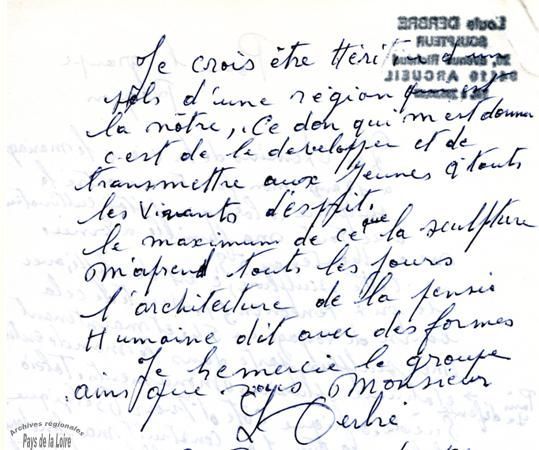 Louis DERBRÉ
SCULPTEUR
94110 ARCUEIL
Je crois être Hérit d'un
fils d'une région qui est
la nôtre, Ce don qui m'est donner
c'est de le developper et de
transmettre aux Jeunes a touts
les Vivants d'esprit.
le maximum de ce que la sculpture
M'aprend touts les jours
l'architecture de la pensée
Humaine dit avec des formes
Je remercie le groupe
ainsi que vous Monsieur
L Derbré
Archives régionales
Pays de la Loire